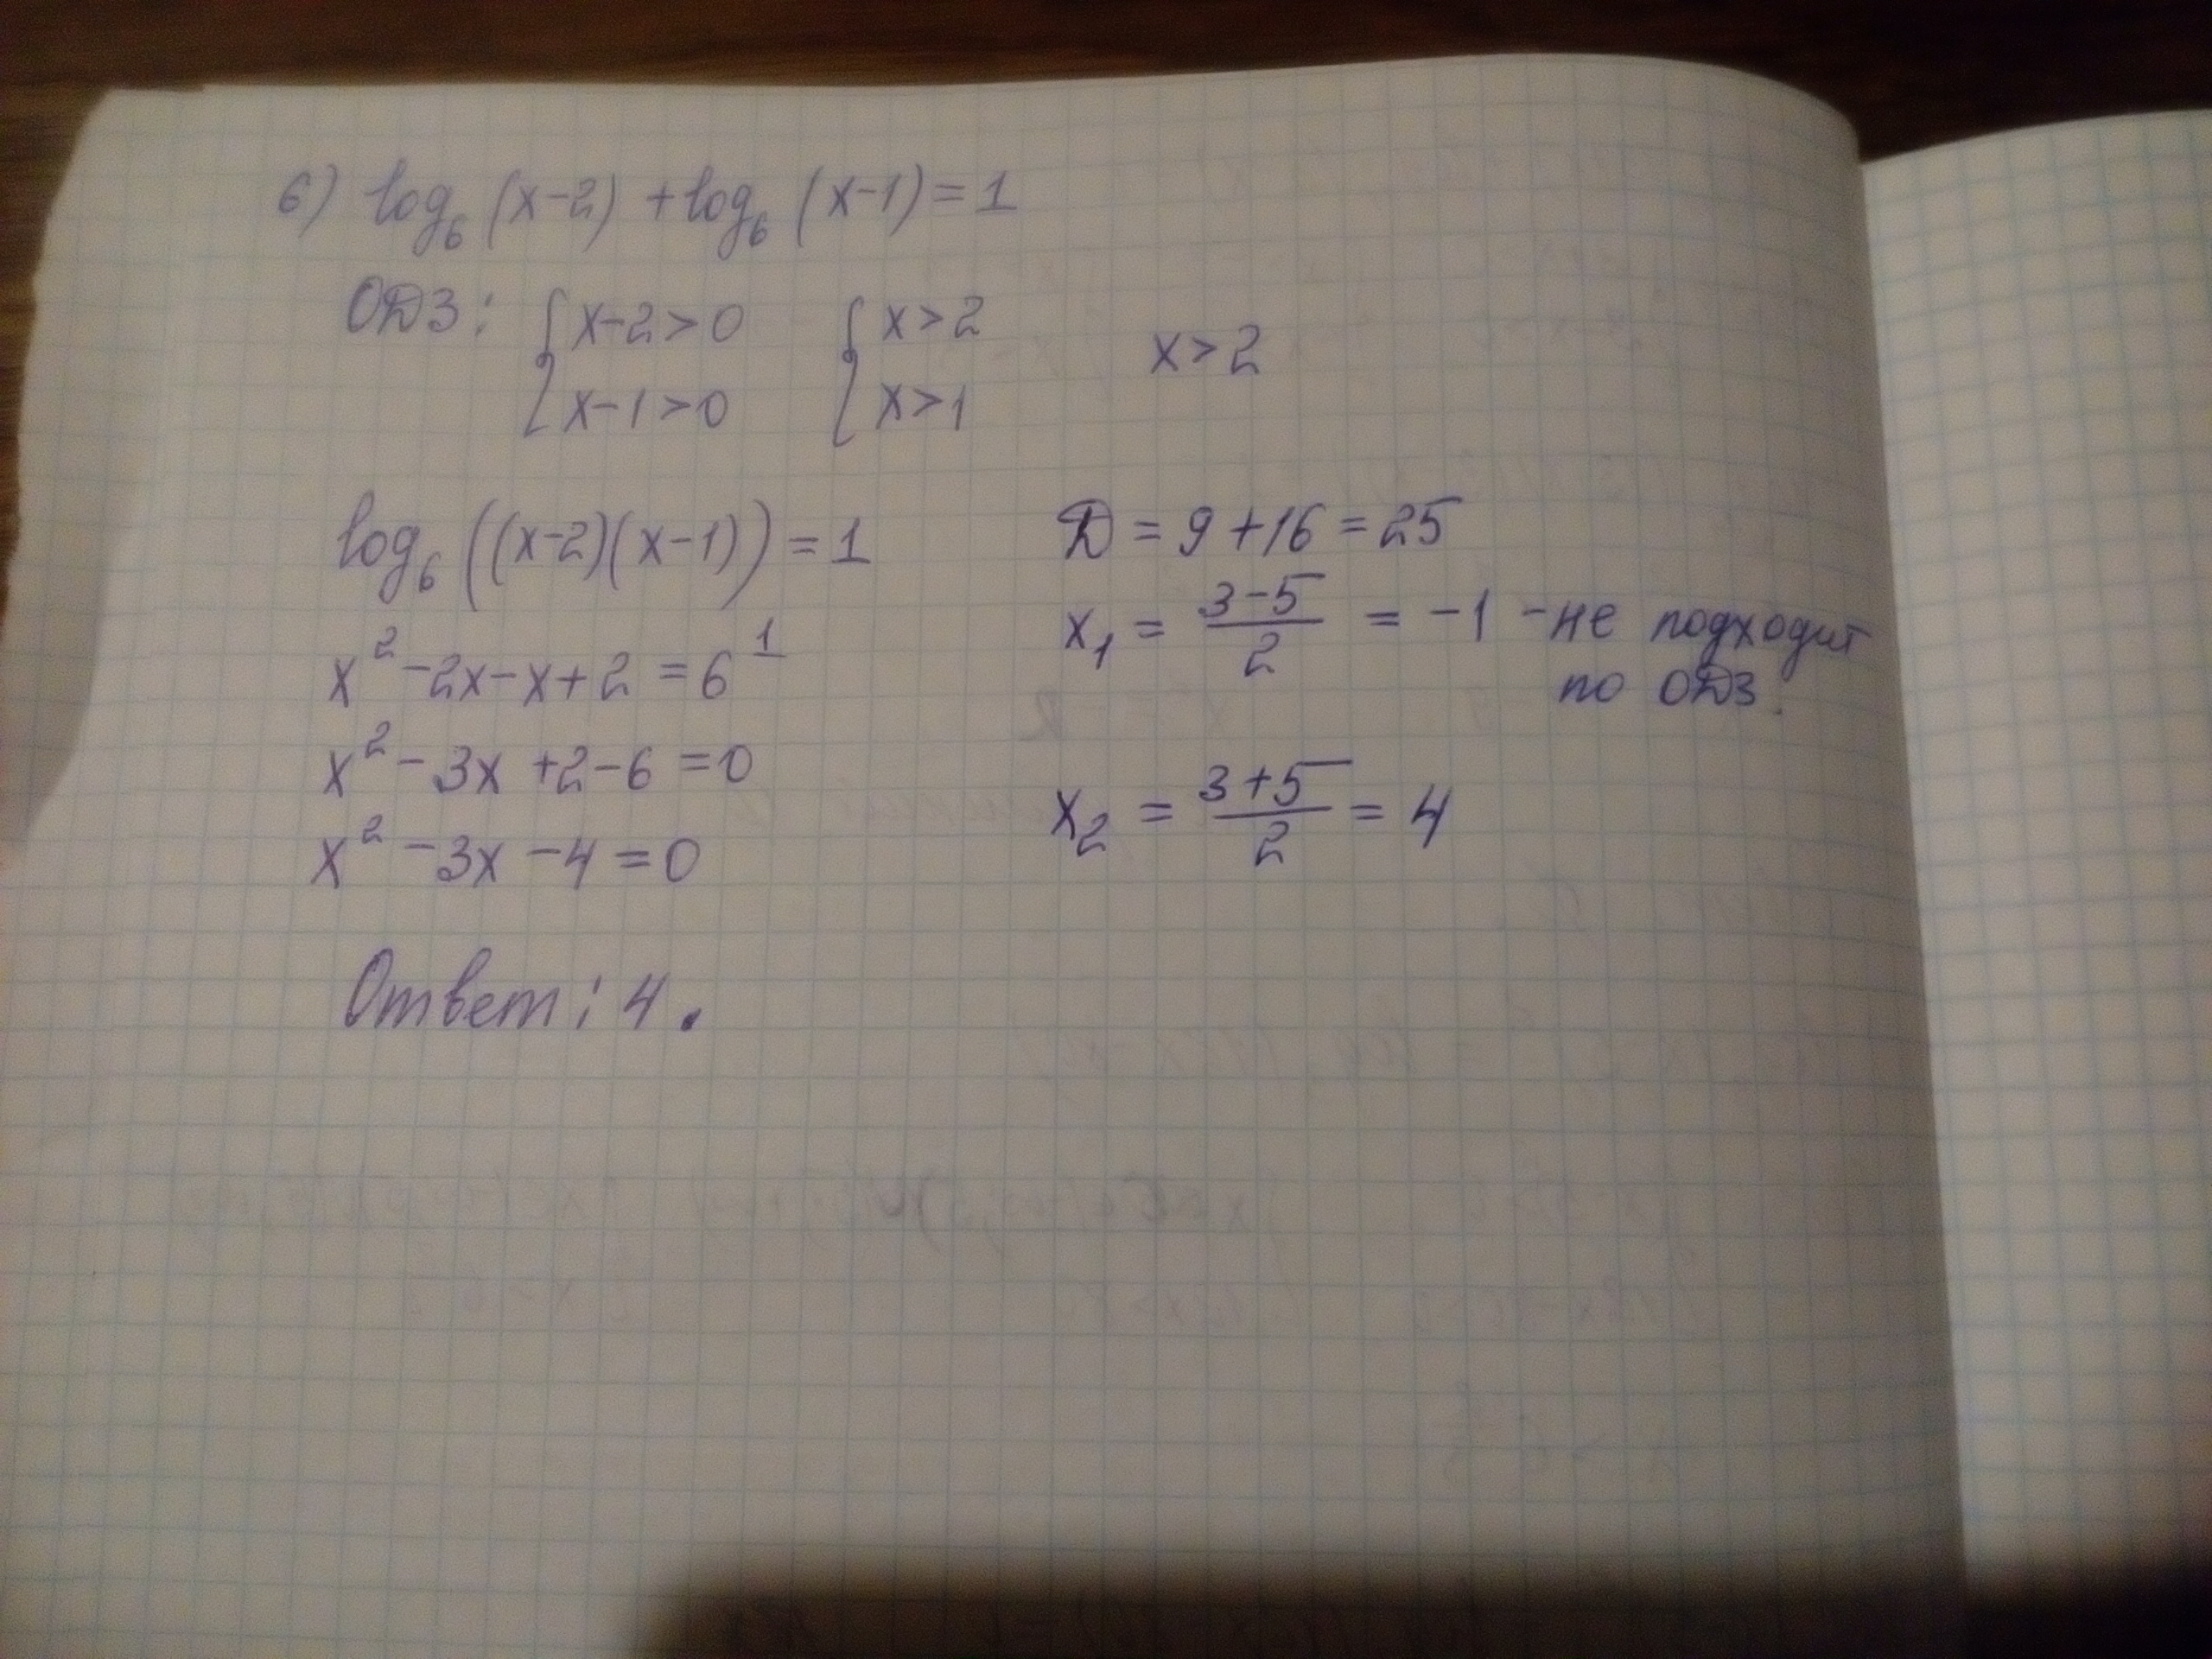 6) log₆(x-2) + log₆(x-1) = 1
ОДЗ: { x-2>0 { x>2 x>2
{ x-1>0 { x>1
log₆((x-2)(x-1)) = 1
x² -2x-x+2 = 6¹
x² - 3x +2-6 = 0
x² - 3x - 4 = 0
D = 9+16 = 25
x₁ = (3-5)/2 = -1 - не подходит
по ОДЗ.
x₂ = (3+5)/2 = 4
Ответ: 4.